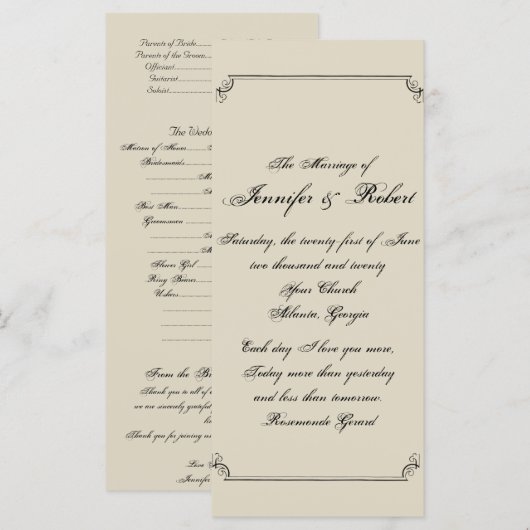 Parents of Bride
Parents of the Groom
Officiant
Guitarist
Soloist
The
Matron of Honor
Bridesmaids
Best Man
Groomsmen
Flower Girl
Ring Bearer
Ushers
From the
Thank you to all of
we are sincerely grateful
Thank you for joining
Jennifer
The Marriage of
Jennifer & Robert
Saturday, the twenty-first of June
two thousand and twenty
Your Church
Atlanta, Georgia
Each day I love you more,
Today more than yesterday
and less than tomorrow.
Rosemonde Gerard